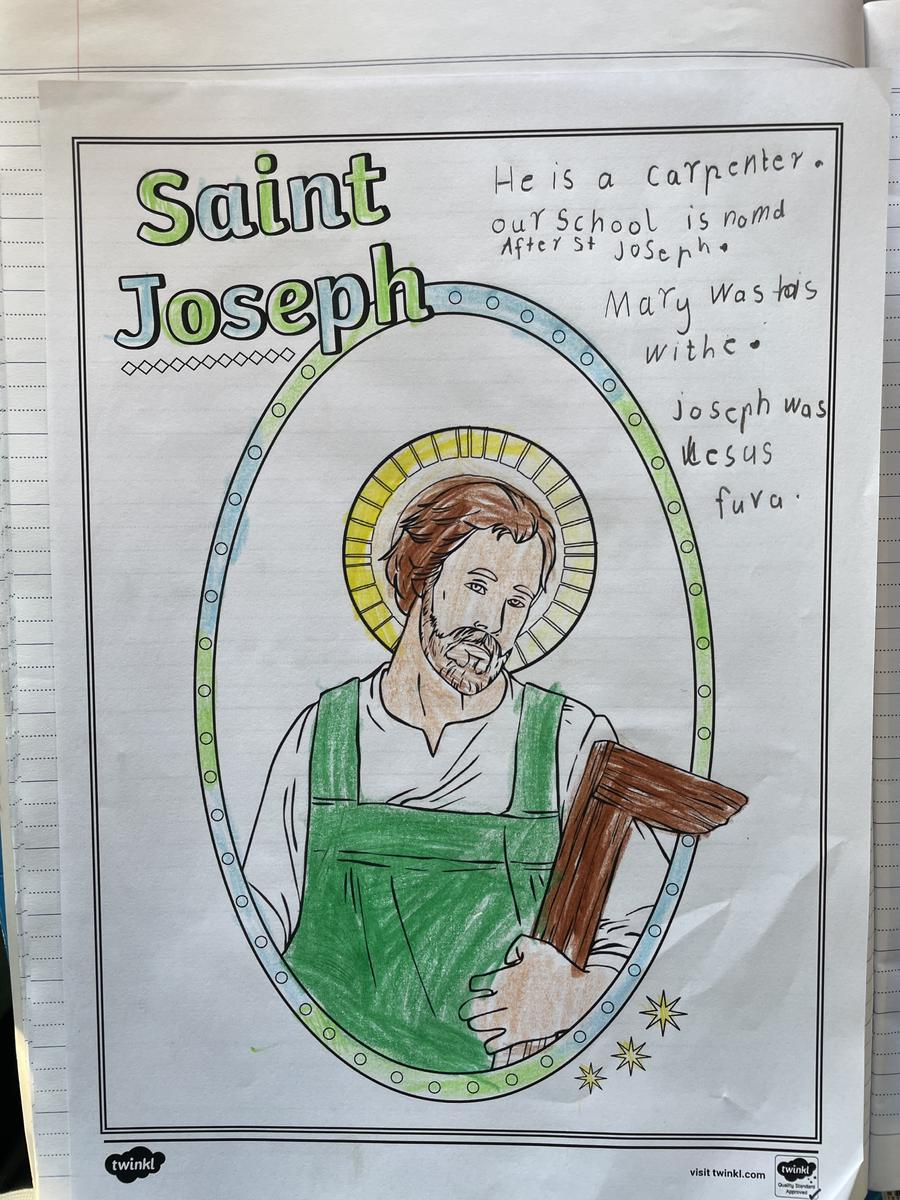 Saint
Joseph
He is a carpenter.
our School is nomd
After St Joseph.
Mary was his
withe.
joseph was
Jesus
fura.
twinkl
visit twinkl.com
twinkl
Quality Standard
Approved